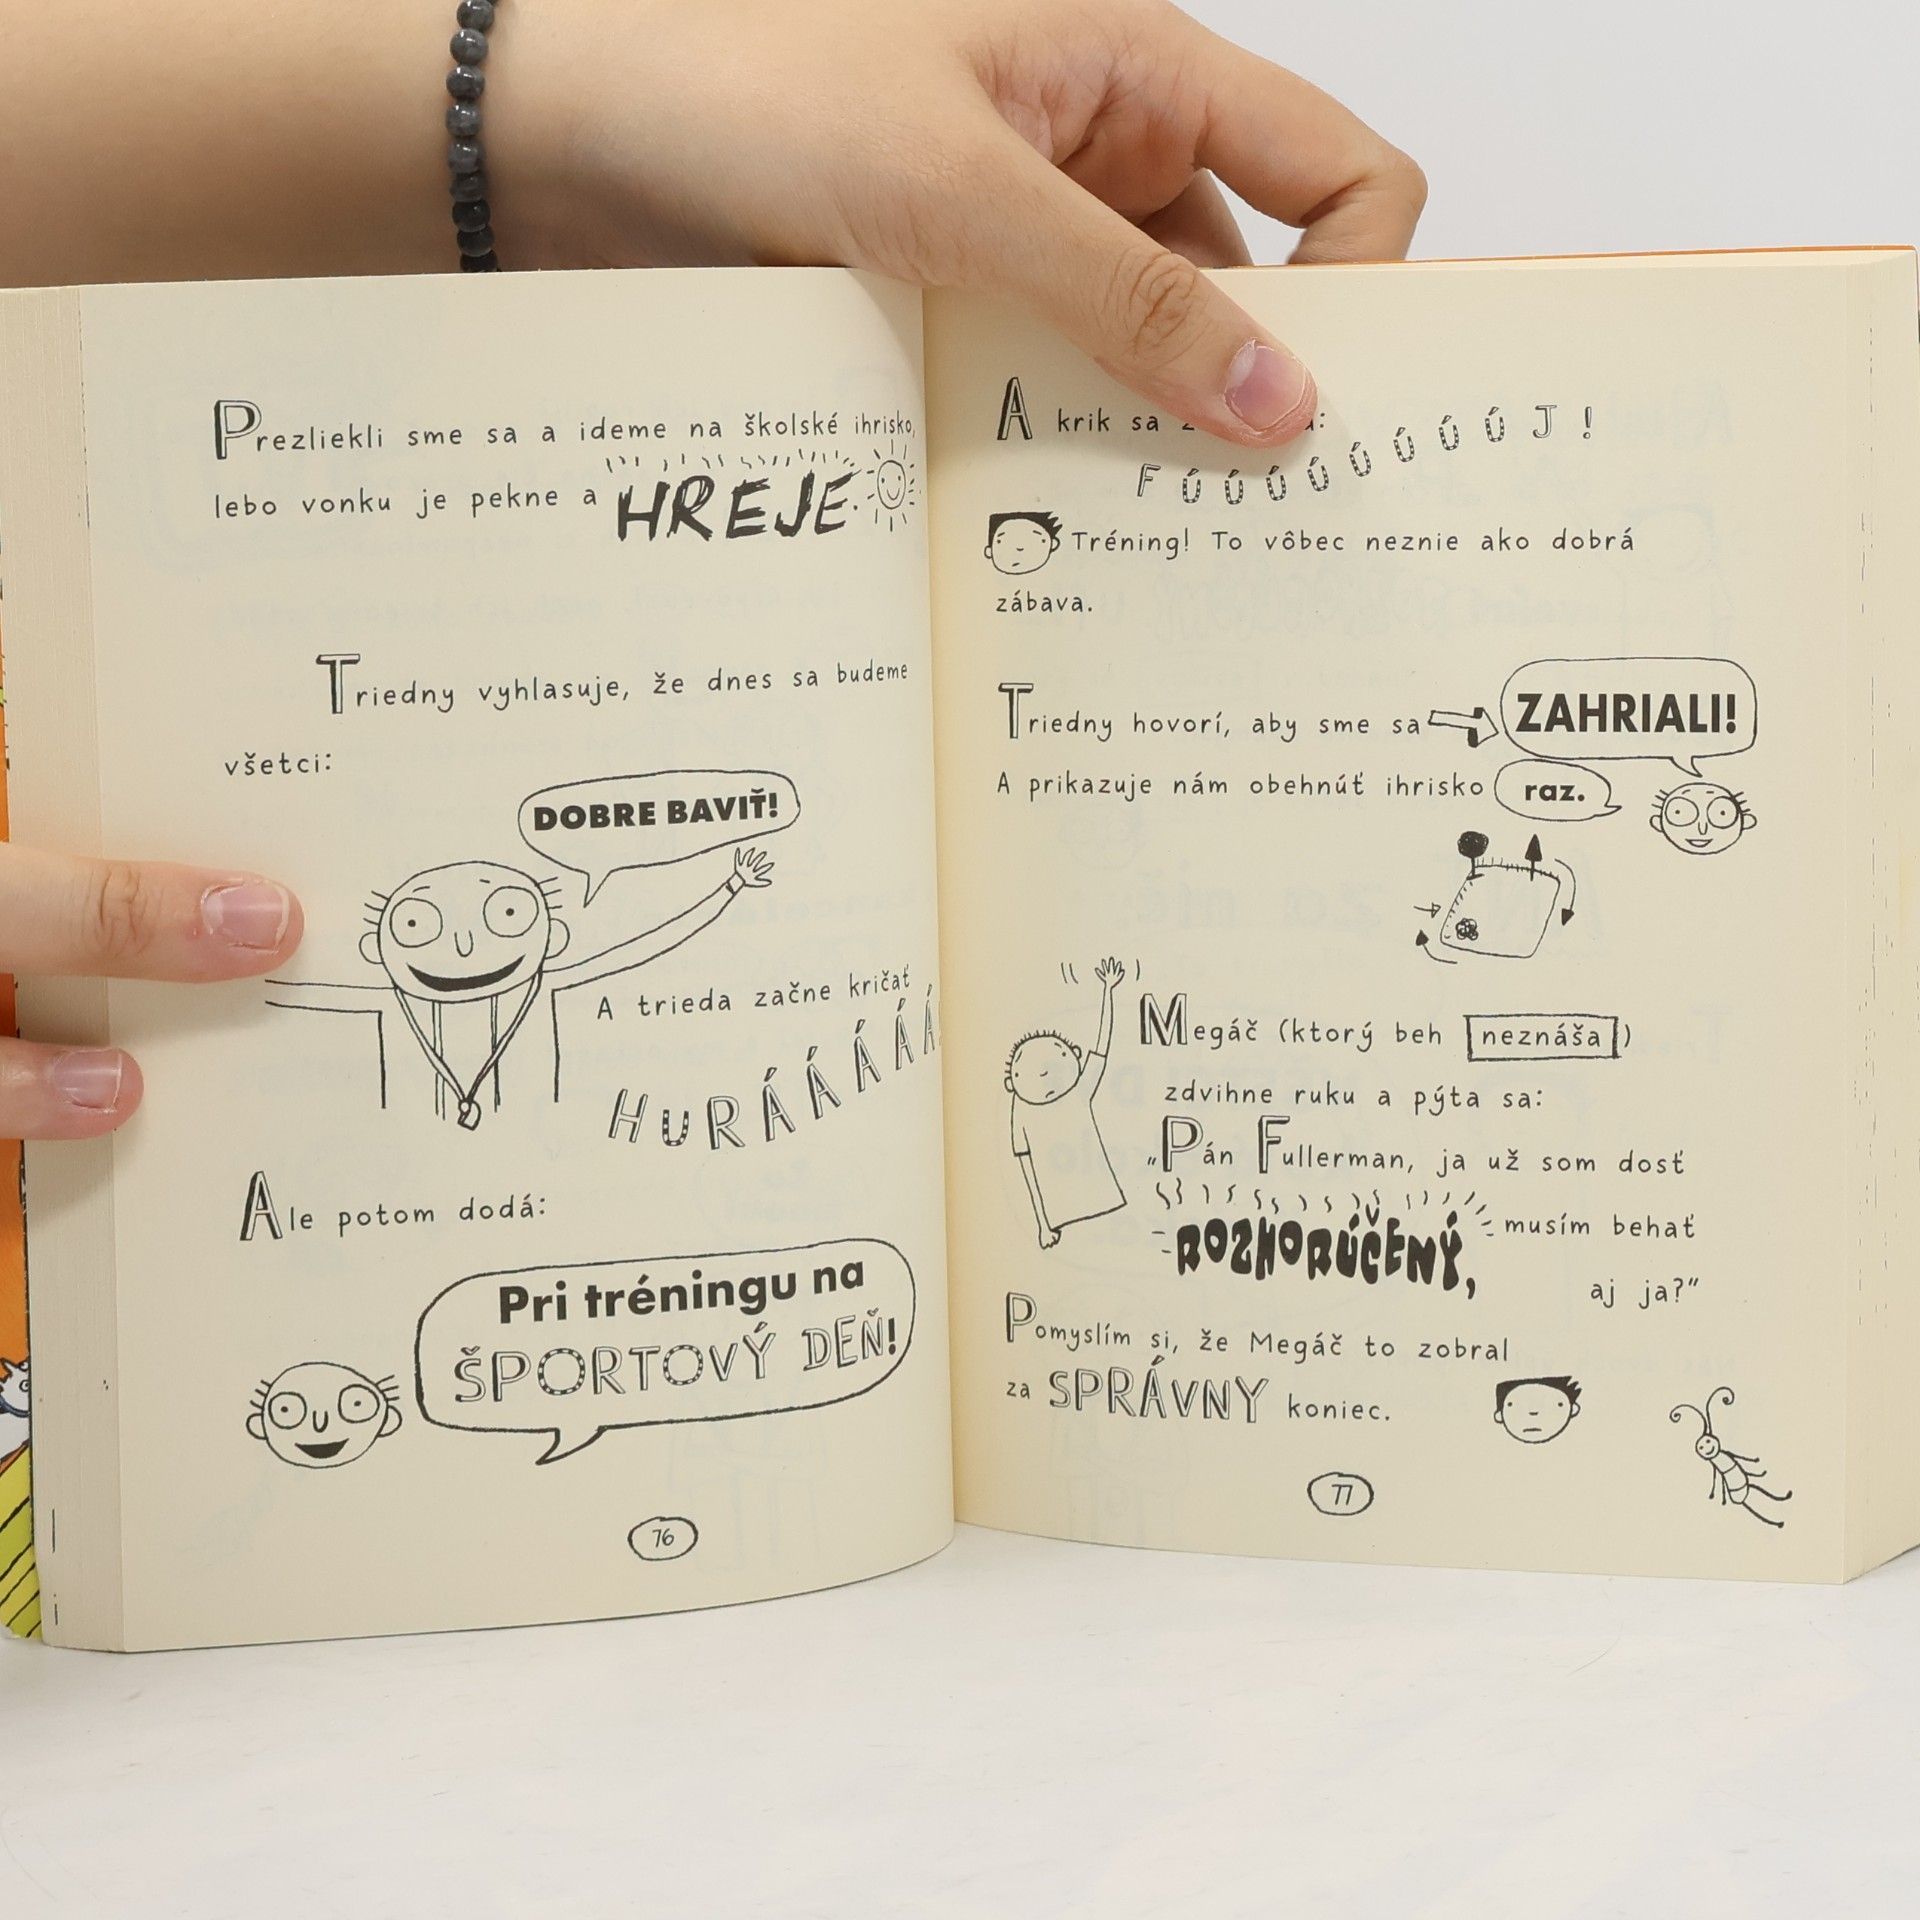 Prezliekli sme sa a ideme na školské ihrisko,
lebo vonku je pekne a HREJE.
Triedny vyhlasuje, že dnes sa budeme
všetci:
DOBRE BAVIŤ!
A trieda začne kričať
HURÁÁÁÁÁ
Ale potom dodá:
Pri tréningu na
ŠPORTOVÝ DEŇ!
76
A krik sa
FÚÚÚÚÚÚÚÚJ!
Tréning! To vôbec neznie ako dobrá
zábava.
Triedny hovorí, aby sme sa ZAHRIALI!
A prikazuje nám obehnúť ihrisko raz.
Megáč (ktorý beh neznáša)
zdvihne ruku a pýta sa:
„Pán Fullerman, ja už som dosť
ROZHORÚČENÝ, musím behať
aj ja?"
Pomyslím si, že Megáč to zobral
za SPRÁVNY koniec.
77